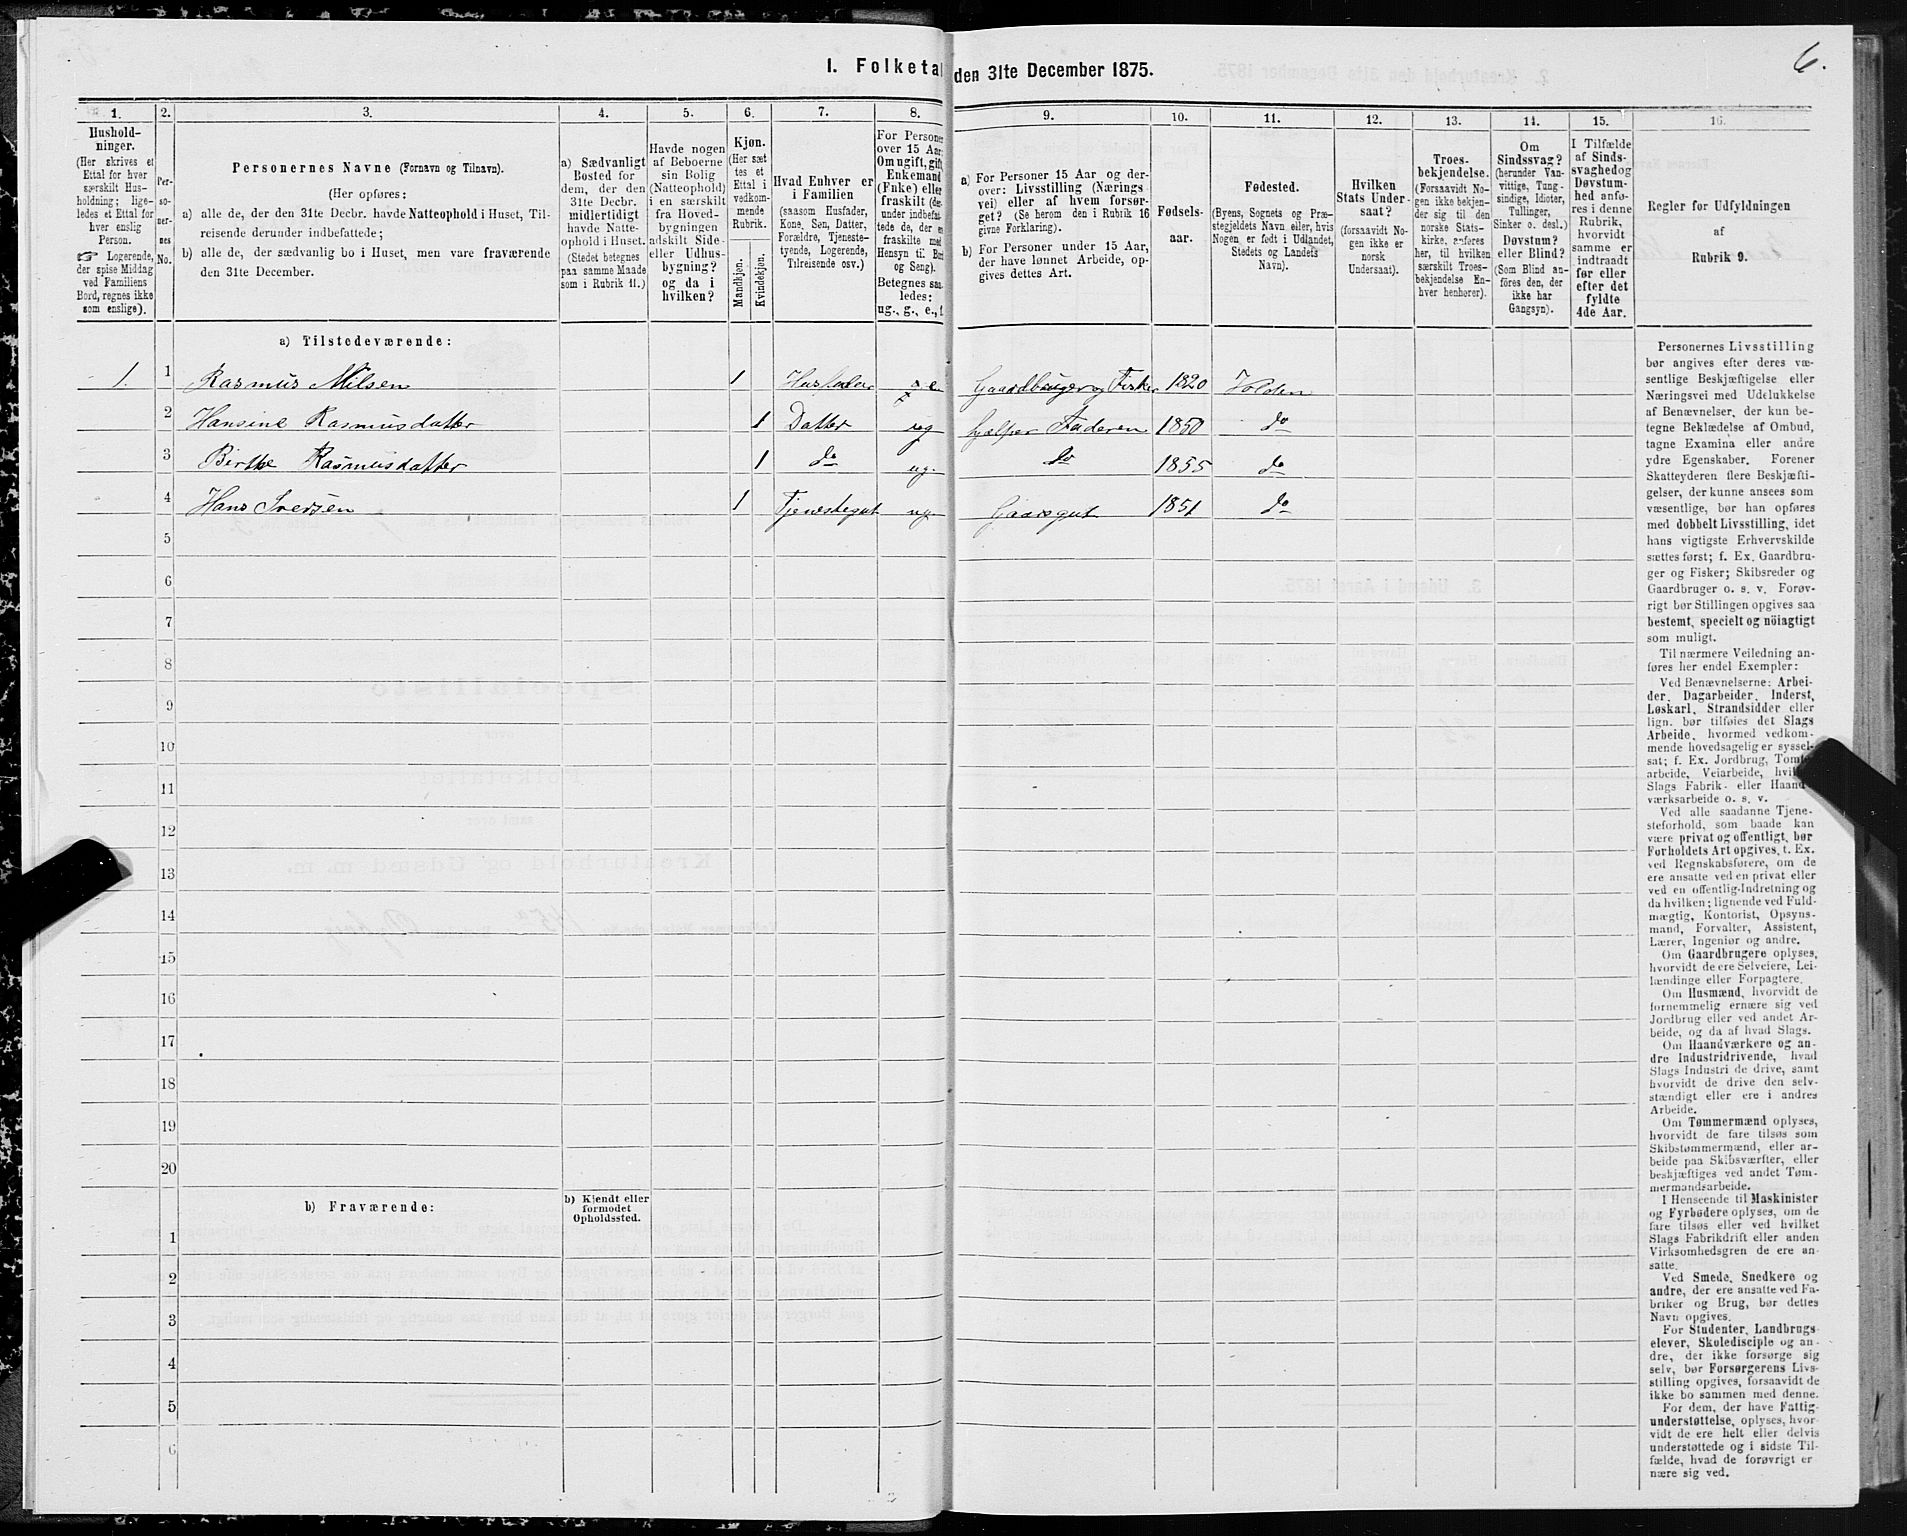 6.
I. Folketal den 31te December 1875.
1. 2. 3. 4. 5. 6. 7. 8. 9. 10. 11. 12. 13. 14. 15. 16.
Hushold-
ninger.
(Her skrives et
Ettal for hver
særskilt Hus-
holdning; lige-
ledes et Ettal for
hver enslig
Person.
☞ Logerende,
der spise Middag
ved Familiens
Bord, regnes ikke
som enslige).
Per-
so-
ner-
nes
No.
Personernes Navne (Fornavn og Tilnavn).
(Her opføres:
a) alle de, der den 31te Decbr. havde Natteophold i Huset, Til-
reisende derunder indbefattede;
b) alle de, der sædvanlig bo i Huset, men vare fraværende
den 31te December.
a) Sædvanligt
Bosted for
dem, der den
31te Decbr.
midlertidigt
havde Natte-
ophold i Huset.
(Stedet betegnes
paa samme Maade
som i Rubrik 11.)
Havde nogen
af Beboerne
sin Bolig
(Natteophold)
i en særskilt
fra Hoved-
bygningen
adskilt Side-
eller Udhus-
bygning?
og da i
hvilken?
Kjøn.
(Her sæt
tes et
Ettal i
vedkom-
mende
Rubrik.
Mandkjøn.
Kvindekjøn.
Hvad Enhver er
i Familien
(saasom Husfader,
Kone, Søn, Datter,
Forældre, Tjeneste-
tyende, Logerende,
Tilreisende osv.)
For Personer
over 15 Aar:
Om ugift, gift
Enkemand
(Enke) eller
fraskilt (der-
under indbefat-
tede de, der er
fraskilte med
Hensyn til Bord
og Seng).
Betegnes saa-
ledes:
ug., g., e., f.
a) For Personer 15 Aar og der-
over: Livsstilling (Nærings
vei) eller af hvem forsør-
get? (Se herom den i Rubrik 16
givne Forklaring).
b) For Personer under 15 Aar,
der have lønnet Arbeide, op-
gives dettes Art.
Fødsels-
aar.
Fødested.
(Byens, Sognets og Præ-
stegjeldets Navn eller, hvis
Nogen er født i Udlandet,
Stedets og Landets
Navn).
Hvilken
Stats Under-
saat?
(forsaavidt No-
gen ikke er
norsk
Undersaat).
Troes-
bekjendelse.
(Forsaavidt No-
gen ikke bekjen-
der sig til den
norske Stats-
kirke, anføres
her, til hvilken
særskilt Troes-
bekjendelse En-
hver henhører).
Om
Sindssvag?
(herunder Van-
vittige, Tung-
sindige, Idioter,
Tullinger,
Sinker o. desl.)
Døvstum?
eller Blind?
(Som Blind an-
føres den, der
ikke har
Gangsyn).
I Tilfælde
af Sinds-
svaghed og
Døvstum-
hed anfø-
res i denne
Rubrik,
hvorvidt
samme er
indtraadt
før eller
efter det
fyldte
4de Aar.
Regler for Udfyldningen
af
Rubrik 9.
a) Tilstedeværende:
1. 1 Rasmus Nilsen 1 Husfader e Gaardbruger og Fisker 1820 Volden
2 Hansine Rasmusdatter 1 Datter ug hjælper Faderen 1850 do
3 Birthe Rasmusdatter 1 do ug do 1855 do
4 Hans Iversen 1 Tjenestegut ug Gaarsgut 1851 do
5
6
7
8
9
10
11
12
13
14
15
16
17
18
19
20
b) Fraværende:
b) Kjendt eller
formodet
Opholdssted.
1
2
3
4
5
6
Personernes Livsstilling
bør angives efter deres væ-
sentlige Beskjæftigelse eller
Næringsvei med Udelukkelse
af Benævnelser, der kun be-
tegne Beklædelse af Ombud,
tagne Examina eller andre
ydre Egenskaber. Forener
Skatteyderen flere Beskjæfti-
gelser, der kunne ansees som
væsentlige, bør han opføres
med dobbelt Livsstilling, idet
hans vigtigste Erhvervskilde
sættes først; f. Ex. Gaardbru-
ger og Fisker; Skibsreder og
Gaardbruger o. s. v. Forøv-
rigt bør Stillingen opgives saa
bestemt, specielt og nöiagtigt
som muligt.
Til nærmere Veiledning an-
føres her endel Exempler:
Ved Benævnelserne: Arbei-
der, Dagarbeider, Inderst,
Løskarl, Strandsidder eller
lign. bør tilføies det Slags
Arbeide, hvormed vedkom-
mende hovedsagelig er syssel-
sat; f. Ex. Jordbrug, Tomte-
arbeide, Veiarbeide, hvilket
Slags Fabrik- eller Haand-
værksarbeide o. s. v.
Ved alle saadanne Tjene-
steforhold, som baade kan
være privat og offentligt, bør
Forholdets Art opgives, t. Ex.
ved Regnskabsførere, om de
ere ansatte ved en privat eller
ved en offentlig Indretning og
da hvilken; lignende ved Fuld-
mægtig, Kontorist, Opsyns-
mand, Forvalter, Assistent,
Lærer, Ingeniør og andre.
Om Gaardbrugere oplyses,
hvorvidt de ere Selveiere, Lei-
lændinge eller Forpagtere.
Om Husmænd, hvorvidt de
fornemmelig ernære sig ved
Jordbrug eller ved andet Ar-
beide, og da af hvad Slags.
Om Haandværkere og an-
dre Industridrivende, hvad
Slags Industri de drive, samt
hvorvidt de drive den selv-
stændigt eller ere i andres
Arbeide.
Om Tømmermænd oplyses,
hvorvidt de fare tilsøs som
Skibstømmermænd, eller ar-
beide paa Skibsværfter, eller
beskjæftiges ved andet Tøm-
mermandsarbeide.
I Henseende til Maskinister
og Fyrbødere oplyses, om de
fare tilsøs eller ved hvilket
Slags Fabrikdrift eller anden
Virksomhedsgren de ere an-
satte.
Ved Smede, Snedkere og
andre, der ere ansatte ved Fa-
briker og Brug, bør dettes
Navn opgives.
For Studenter, Landbrugs-
elever, Skoledisciple og an-
dre, der ikke forsørge sig
selv, bør Forsørgerens Livs-
stilling opgives, forsaavidt de
ikke bo sammen med denne.
For dem, der have Fattig-
understøttelse, oplyses, hvor-
vidt de ere helt eller delvis
understøttede og i sidste Til-
fælde, hvad de forøvrigt er
nære sig ved.